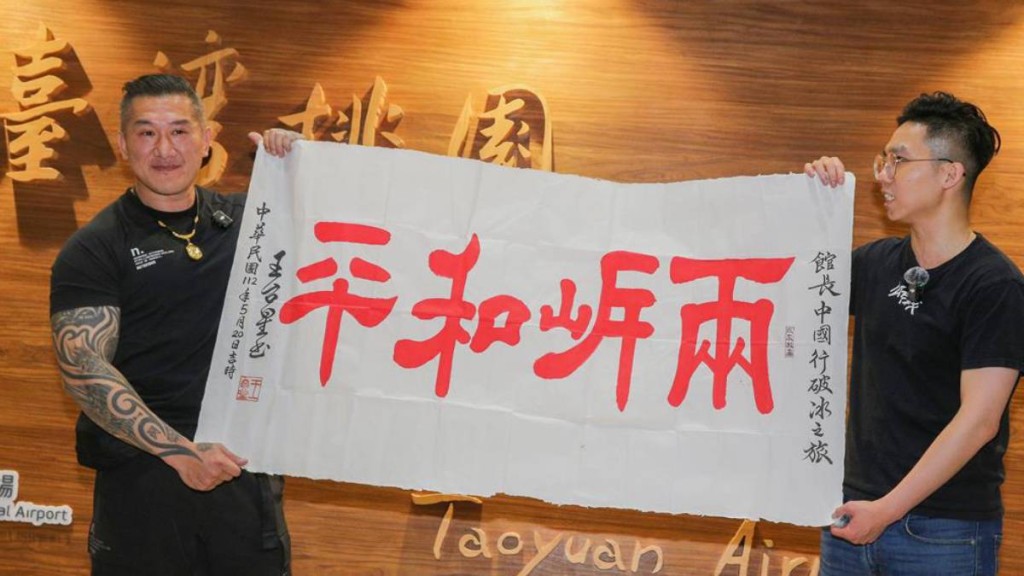 臺灣桃園
館長中國行破冰之旅
兩㟁和平
王台星书
中華民國112年5月20日吉時
場
al Airport
Taoyuan Air